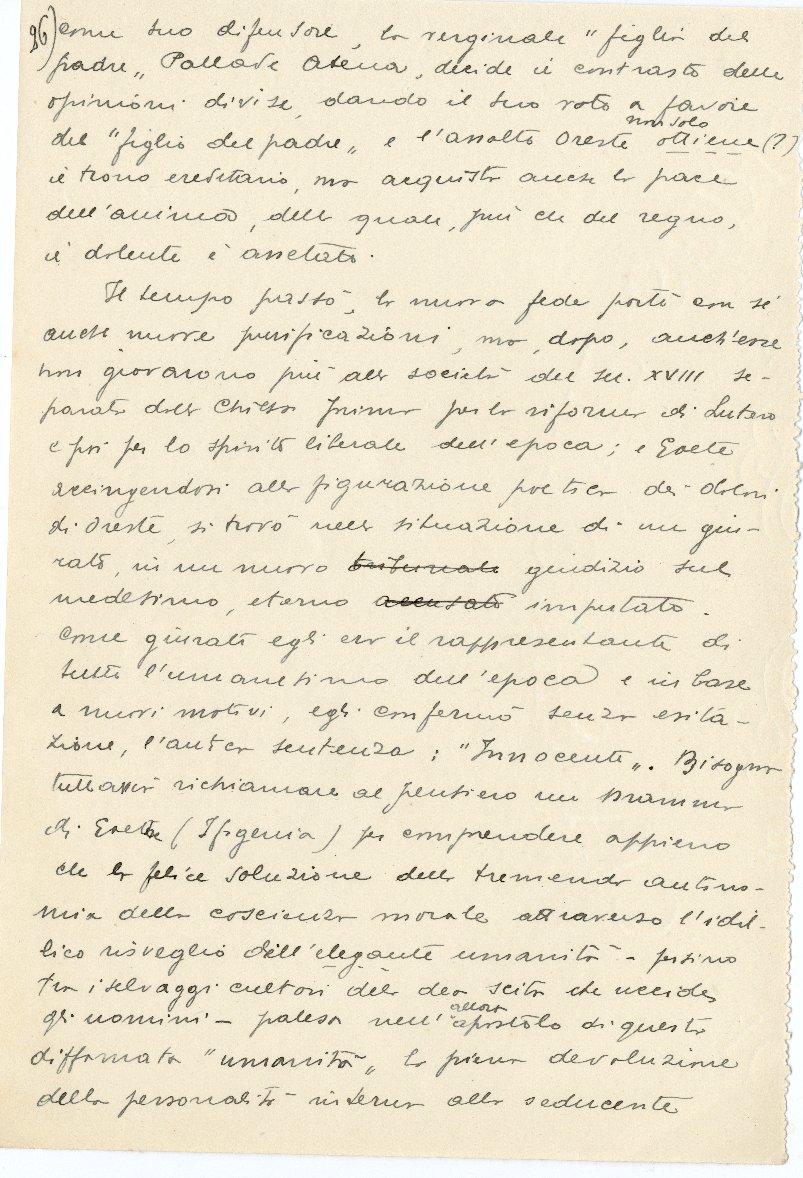 26) come suo difensore, la verginale "figlia del
padre„ Pallade Atena, decide il contrasto delle
opinioni divise, dando il suo voto a favore
del "figlio del padre„ e l'assolto Oreste non solo ottiene (?)
il trono ereditario, ma acquista anche la pace
dell'anima, della quale, più che del regno,
è dolente e assetato.
Il tempo passò, la nuova fede portò con sé
anche nuove purificazioni, ma, dopo, anch'esse
non giovarono più alla società del sec. XVIII se-
parata dalla Chiesa prima per la riforma di Lutero
e poi per lo spirito liberale dell'epoca; e Goete
accingendosi alla figurazione poetica dei dolori
di Oreste, si trovò nella situazione di un giu-
rato, in un nuovo tribunale giudizio sul
medesimo, eterno accusato imputato.
Come giurato egli era il rappresentante di
tutto l'umanesimo dell'epoca e in base
a nuovi motivi, egli confermò senza esita-
zione, l'antica sentenza: "Innocente„. Bisogna
tuttavia richiamare al pensiero un dramma
di Goethe (Ifigenia) per comprendere appieno
che la felice soluzione della tremenda antino-
mia della coscienza morale attraverso l'idil-
lico risveglio dell'elegante umanità - persino
tra i selvaggi cultori della dea scita che uccide
gli uomini - palesa nell'allora apostolo di questa
diffamata "umanità„ la piena devoluzione
della personalità interna alla seducente